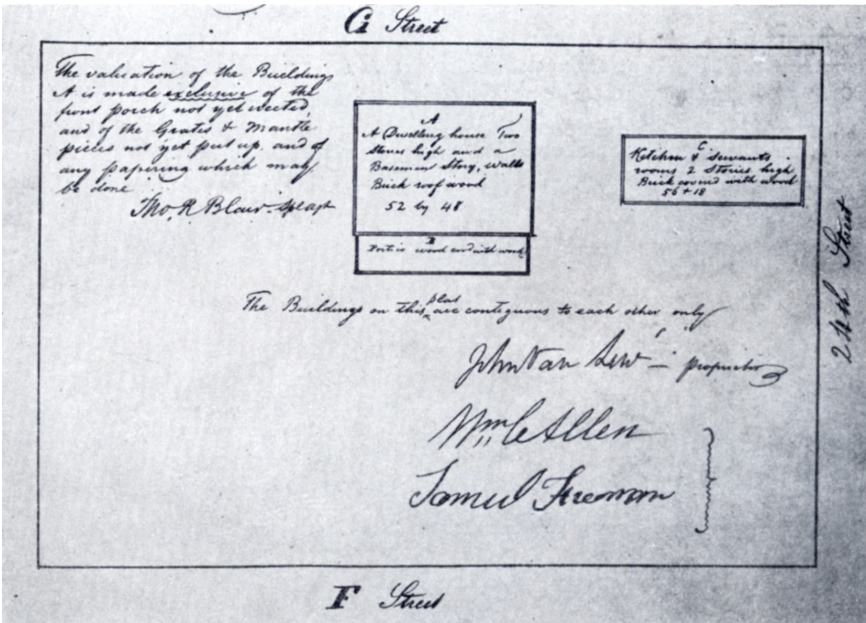 G Street
The valuation of the Buildings
A is made exclusive of the
front porch not yet erected,
and of the Grates & Mantle
pieces not yet put up, and of
any papering which may
be done
Tho. R Blair
A
A Dwelling house Two
Stories high and a
Basement Story, walls
Brick roof wood
52 by 48
B
Portico wood cov'd with wood
C
Kitchen & Servants
rooms 2 Stories high
Brick covered with wood
56 + 18
24th Street
The Buildings on this plat are contiguous to each other only
John Van Lew - proprietor
Wm C Allen
James Freeman
F Street